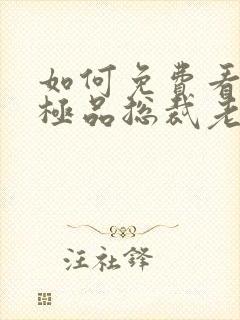 如何免费看
極品总裁老
汪社鋒